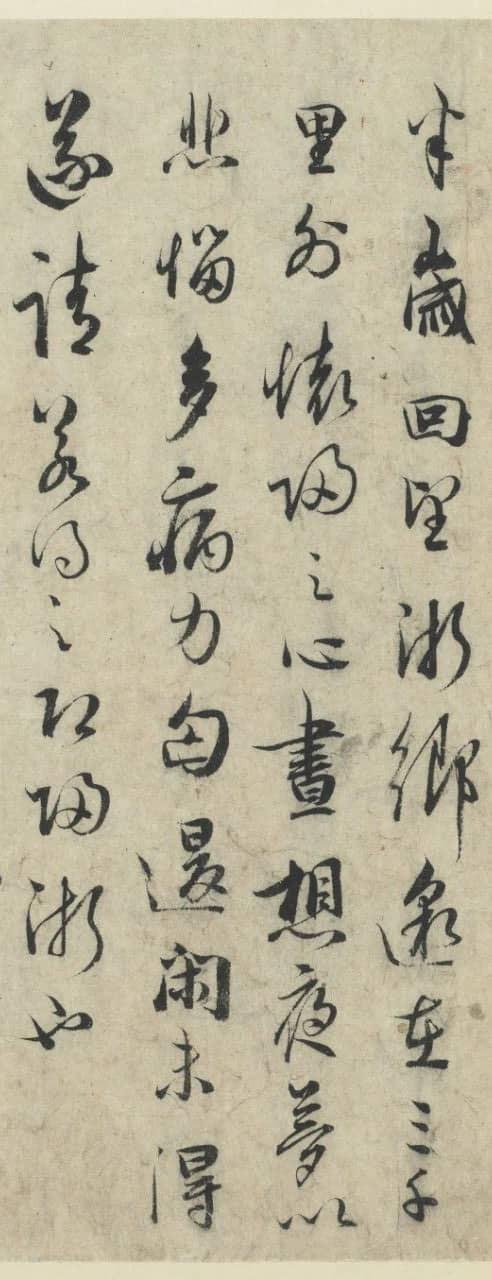 半歲回望浙鄉邈在三千
里外懷歸之心晝想夜夢以
悲惱多病力匄退閑未得
遂請若得之歸浙也